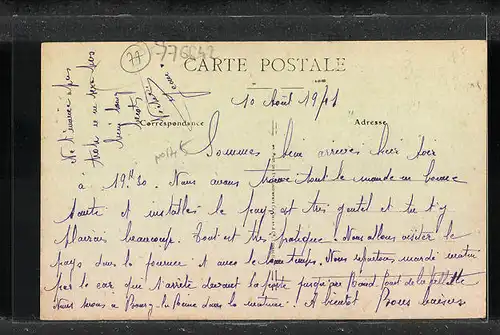 77
776642
CARTE POSTALE
10 Août 1941
Correspondance
Adresse
Sommes bien arrivés hier soir
à 19H30. Nous avons trouvé tout le monde en bonne
santé et installés le pays est très gentil et tu t'y
plairais beaucoup. Tout est très pratique. Nous allons visiter le
pays dans la journée et avec le beau temps. Nous repartons mardi matin
par le car que l'arrête devant la poste jusqu'
Nous irons à Bourg la Reine dans la matinée! A bientôt Bons baisers
Ne t'ennuie pas
trop